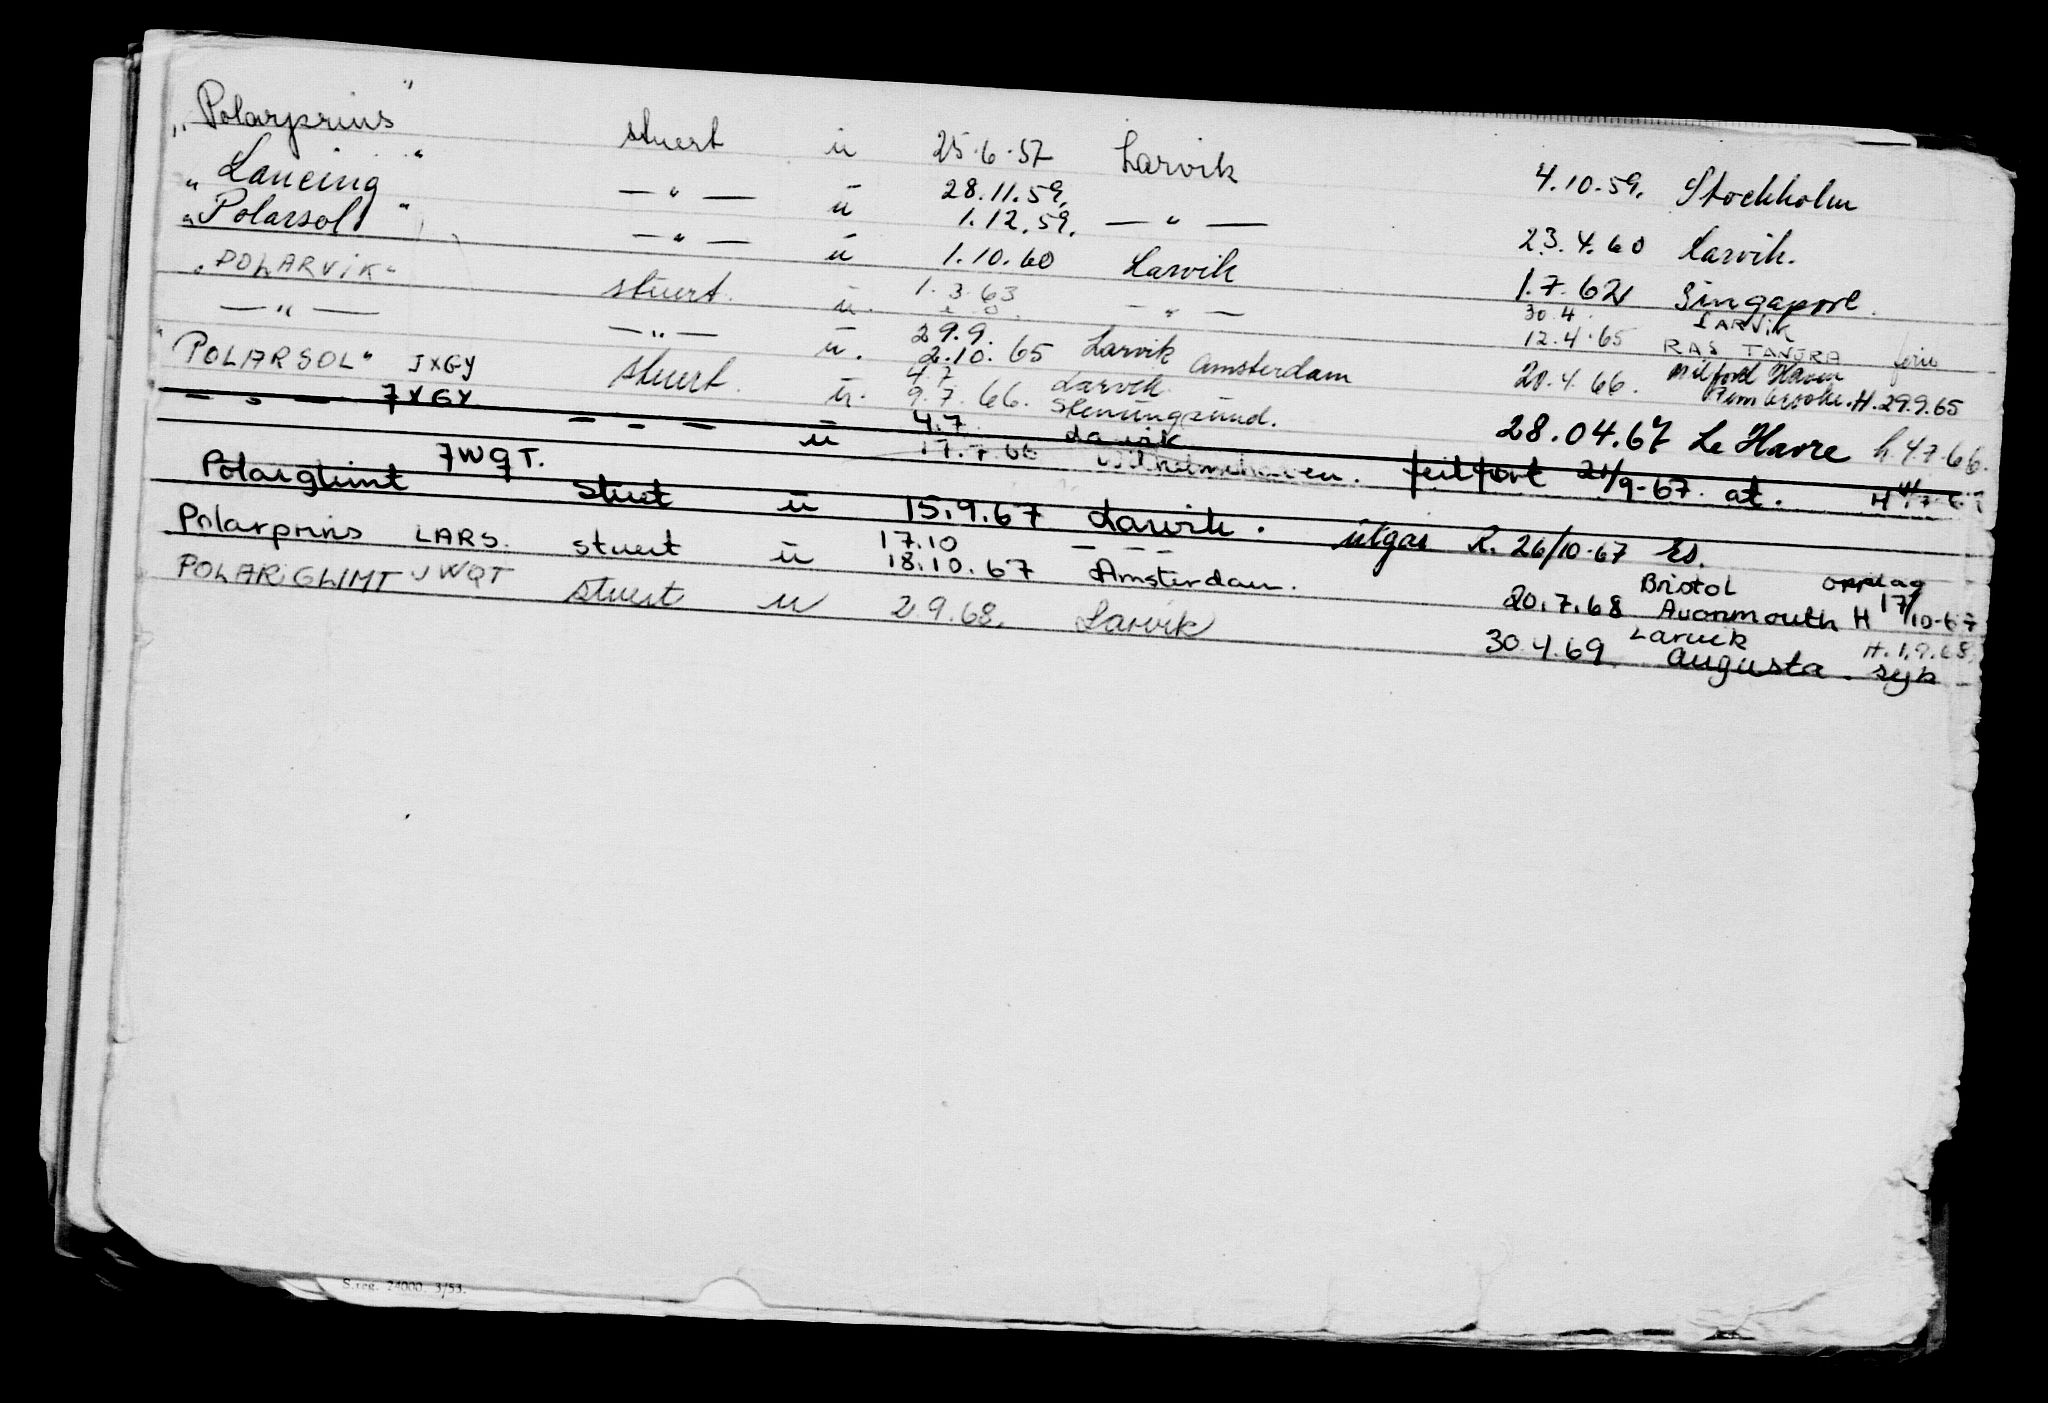 „Polarprins" stuert u 25.6.57 Larvik 4.10.59. Stockholm
„Lancing" — " — u 28.11.59. 1.12.59. — " — 23.4.60 Larvik.
„Polarsol" — " — u 1.10.60 Larvik 1.7.62 Singapore.
„POLARVIK" stuert. u. 1.3.63 — " — 30.4. LARVIK
— " — — " — u. 29.9. Larvik 12.4.65 RAS TANURA ferie
2.10.65 Amsterdam 20.4.66. Milford Haven
"POLARSOL" JXGY stuert. u. 4.7 Larvik Pembroke. H. 29.9.65
9.7.66. Stenungsund. 28.04.67 Le Havre h. 4.7.66.
— " — JXGY — — — u 4.7 Larvik
17.7.66 Wilhelmshaven. feilført 21/9-67. at. H
Polarglimt JWQT. stuert u 15.9.67 Larvik. utgår R. 26/10-67 Es.
Polarprins LARS. stuert u 17.10 — — — Bristol opplag
18.10.67 Amsterdam. 20.7.68 Avonmouth H 17/10-67
POLARGLIMT JWQT stuert u 2.9.68. Larvik Larvik H. 1.9.68.
30.4.69. Augusta. syk
S.reg. 24000. 3/53.